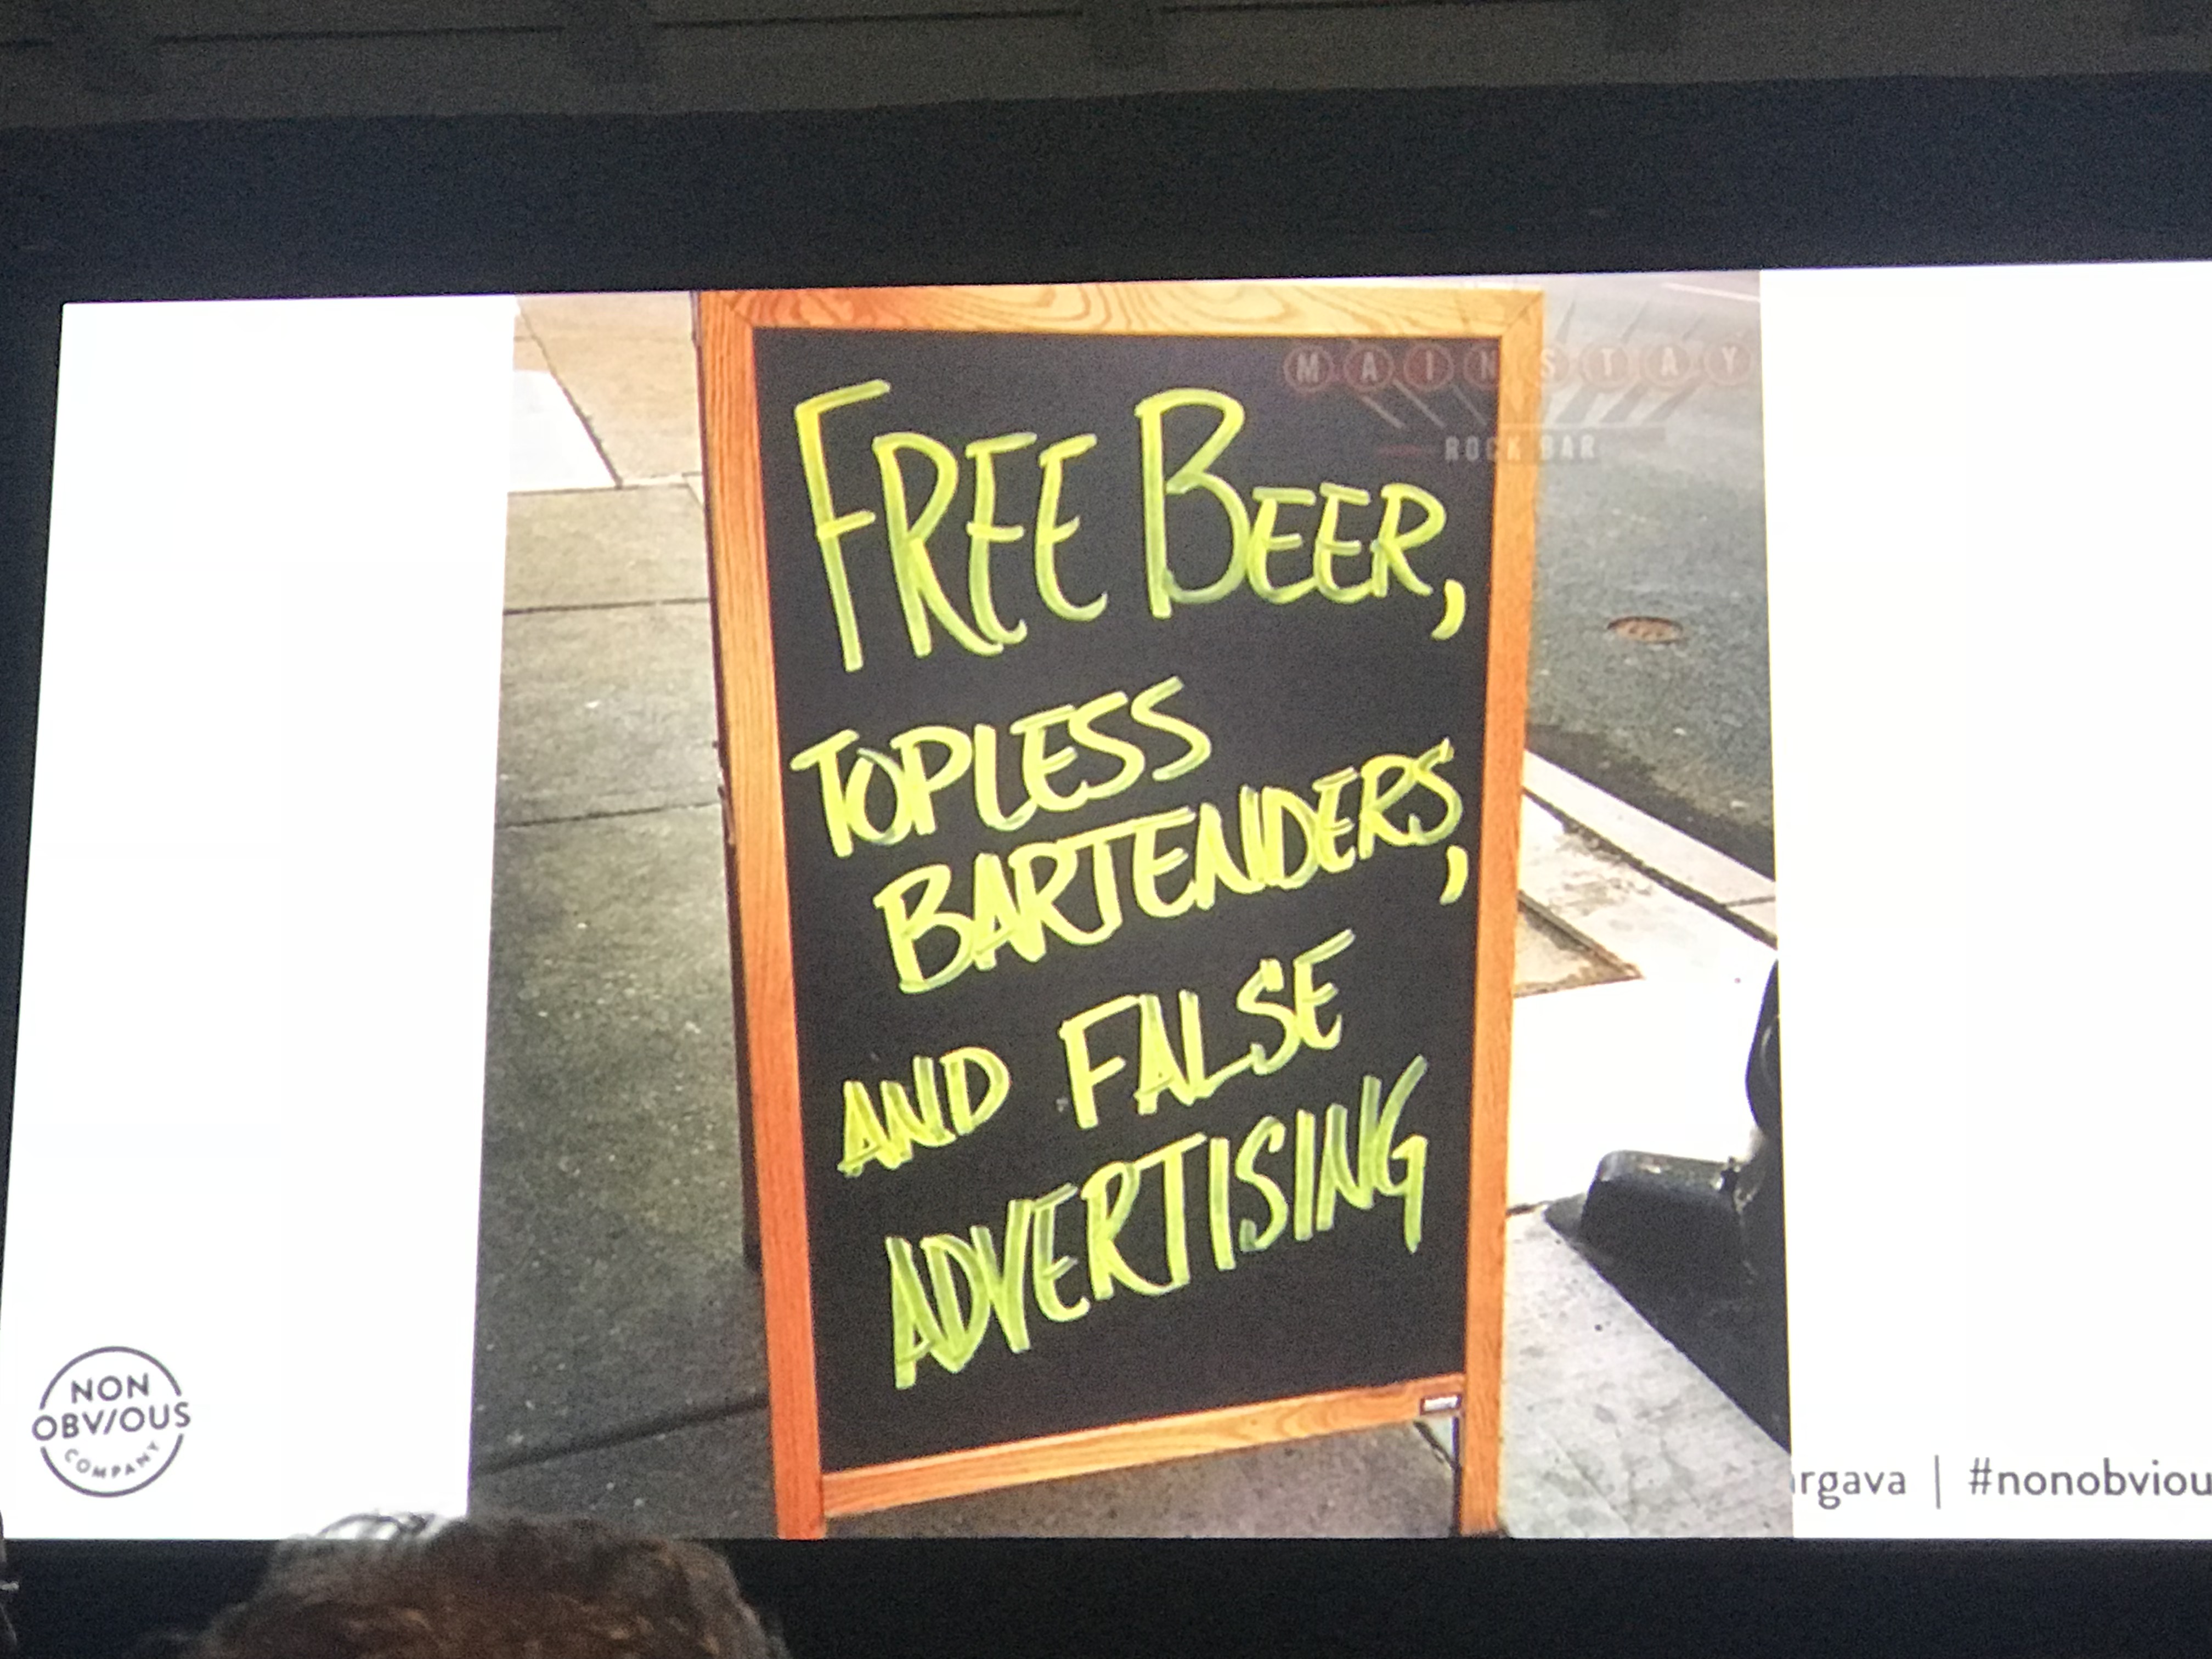 MAINSTAY
ROCK BAR
FREE BEER,
TOPLESS
BARTENDERS,
AND FALSE
ADVERTISING
NON
OBV/OUS
COMPANY
rgava | #nonobviou